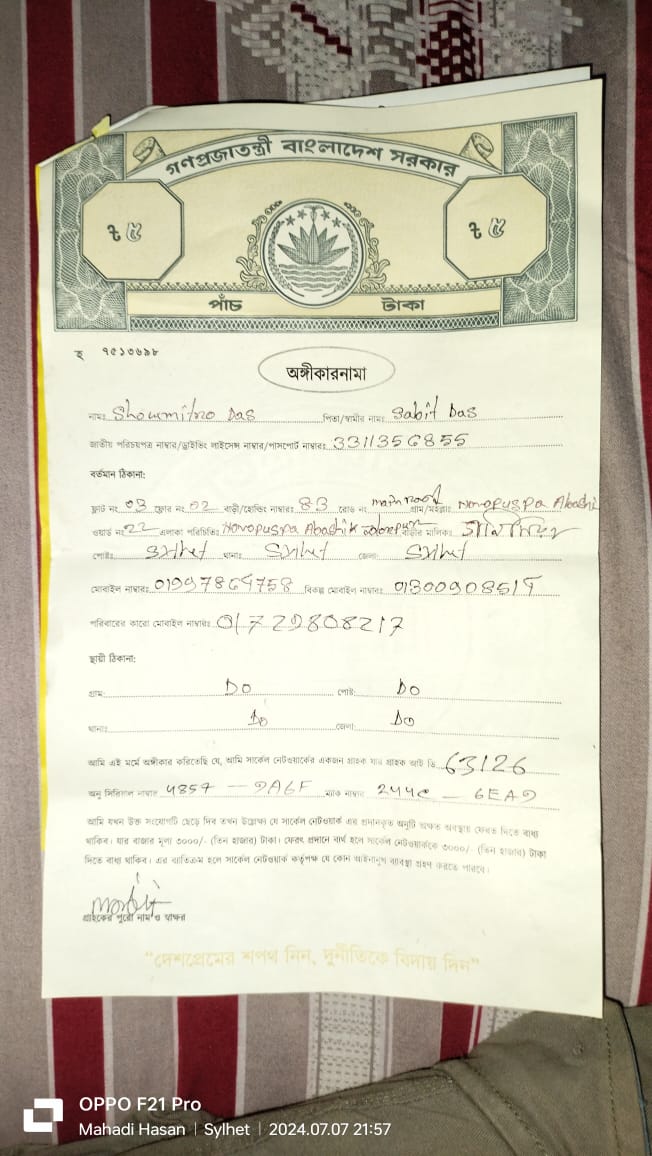 গণপ্রজাতন্ত্রী বাংলাদেশ সরকার
৳ ৫ ৳ ৫
পাঁচ টাকা
হ ৭৫১৩৬৯৮
অঙ্গীকারনামা
নামঃ Showmitro Das পিতা/স্বামীর নামঃ Sabit Das
জাতীয় পরিচয়পত্র নাম্বার/ড্রাইভিং লাইসেন্স নাম্বার/পাসপোর্ট নাম্বারঃ 3311356855
বর্তমান ঠিকানা:
ফ্লাট নং 03 ফ্লোর নং 02 বাড়ী/হোল্ডিং নাম্বারঃ 83 রোড নং main road গ্রাম/মহল্লাঃ Nonopuspa Abashi
ওয়ার্ড নং 22 এলাকা পরিচিতিঃ Nonopuspa Abashik বাড়ীর মালিকঃ
পোষ্টঃ Sylhet থানাঃ Sylhet জেলাঃ Sylhet
মোবাইল নাম্বারঃ 01997864758 বিকল্প মোবাইল নাম্বারঃ 01300908519
পরিবারের কারো মোবাইল নাম্বারঃ 01729808217
স্থায়ী ঠিকানা:
গ্রাম: DO পোষ্ট: DO
থানাঃ Do জেলা: Do
আমি এই মর্মে অঙ্গীকার করিতেছি যে, আমি সার্কেল নেটওয়ার্কের একজন গ্রাহক যার গ্রাহক আই ডি 63126
অনু সিরিয়াল নাম্বার 4857 — 9A6F ম্যাক নাম্বার 244C — 6EA9
আমি যখন উক্ত সংযোগটি ছেড়ে দিব তখন উল্লেখ্য যে সার্কেল নেটওয়ার্ক এর প্রদানকৃত অনুটি অক্ষত অবস্থায় ফেরত দিতে বাধ্য
থাকিব। যার বাজার মূল্য ৩০০০/- (তিন হাজার) টাকা। ফেরৎ প্রদানে ব্যর্থ হলে সার্কেল নেটওয়ার্ককে ৩০০০/- (তিন হাজার) টাকা
দিতে বাধ্য থাকিব। এর ব্যতিক্রম হলে সার্কেল নেটওয়ার্ক কর্তৃপক্ষ যে কোন আইনানুগ ব্যবস্থা গ্রহণ করতে পারবে।
গ্রাহকের পুরো নাম ও স্বাক্ষর
“দেশপ্রেমের শপথ নিন, দুর্নীতিকে বিদায় দিন”
OPPO F21 Pro
Mahadi Hasan | Sylhet | 2024.07.07 21:57